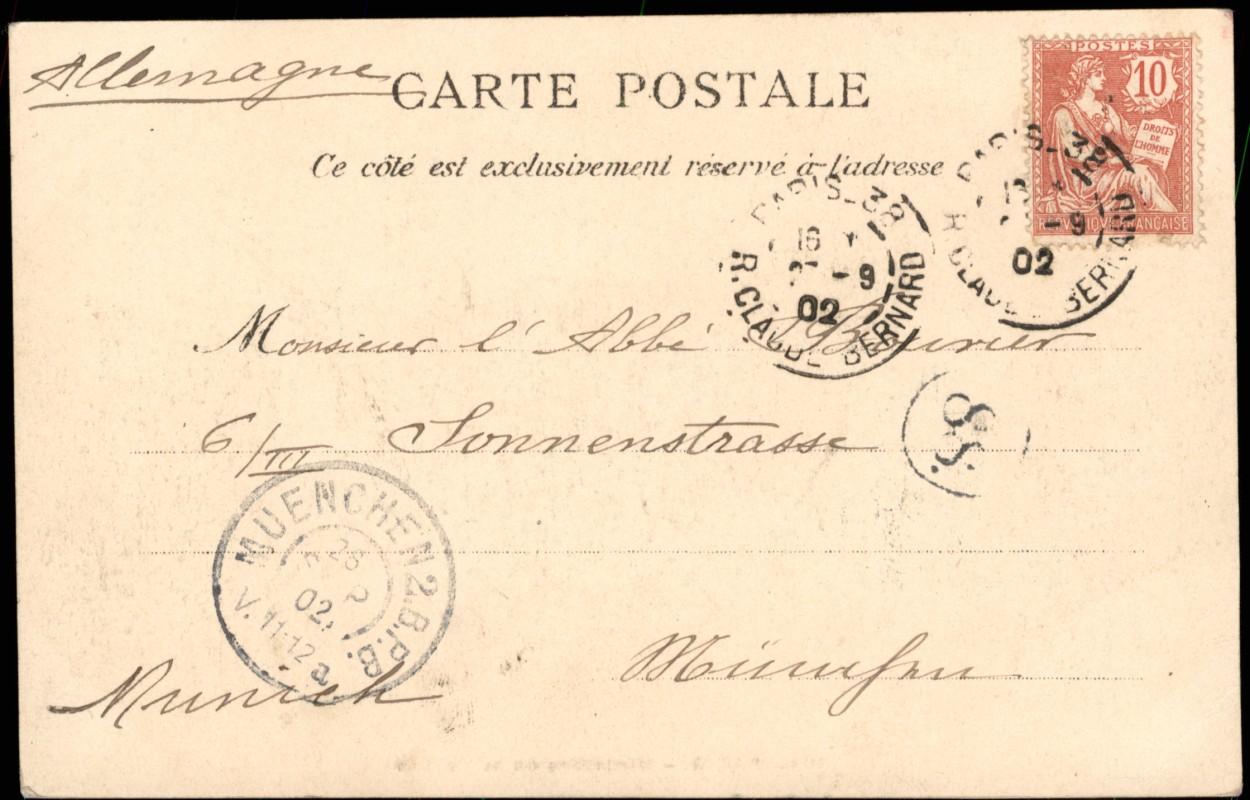 Allemagne
CARTE POSTALE
Ce côté est exclusivement réservé à l'adresse
POSTES
10
DROITS
DE
L'HOMME
RÉPUBLIQUE FRANÇAISE
PARIS-38
18
-9
02
R. CLAUDE BERNARD
PARIS-38
18
-9
02
R. CLAUDE BERNARD
Monsieur l'Abbé Bouvier
6/III Sonnenstrasse
MUENCHEN 2.B.P.B.
02.
V. 11-12 a
München
Munich